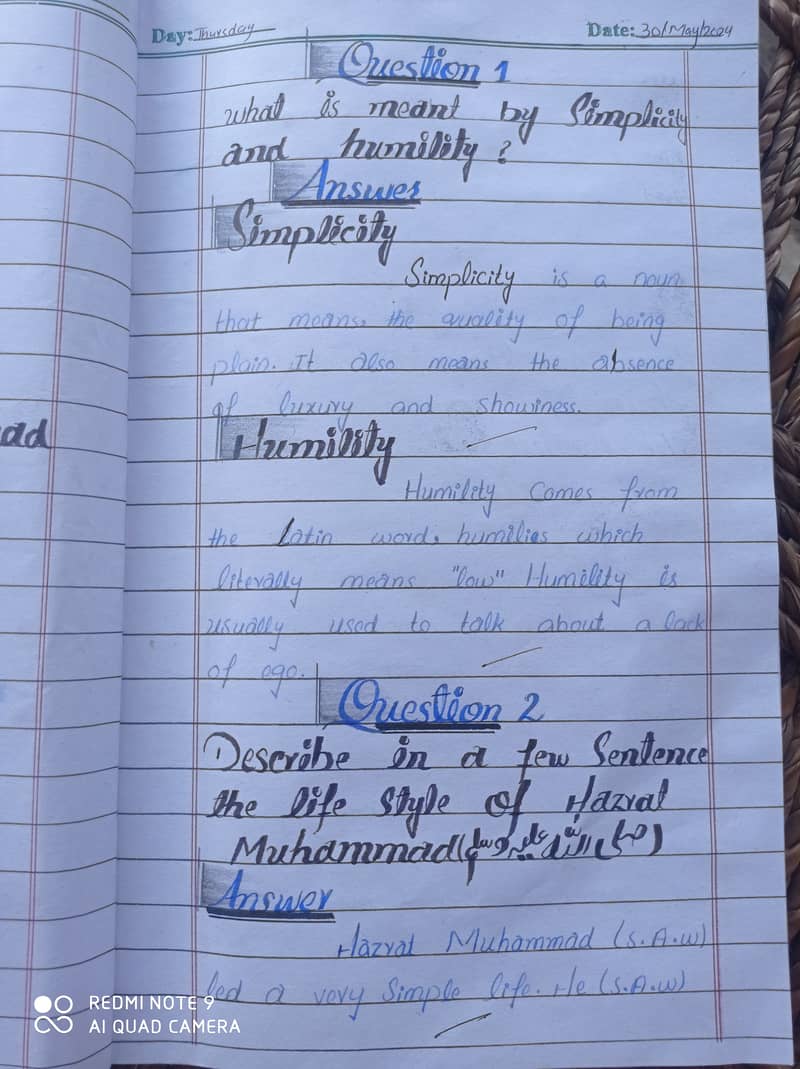 Day: Thursday
Date: 30/May/2024
Question 1
what is meant by Simplicity
and humility?
Answer
Simplicity
Simplicity is a noun
that means, the quality of being
plain. It also means the absence
of luxury and showiness.
ad
Humility
Humility Comes from
the Latin word, humilies which
literally means "low" Humility is
usually used to talk about a lack
of ego.
Question 2
Describe in a few Sentence
the life Style of Hazrat
Muhammad (صلی اللہ علیہ وسلم)
Answer
Hazrat Muhammad (S.A.W)
led a very Simple life. He (S.A.W)
REDMI NOTE 9
AI QUAD CAMERA